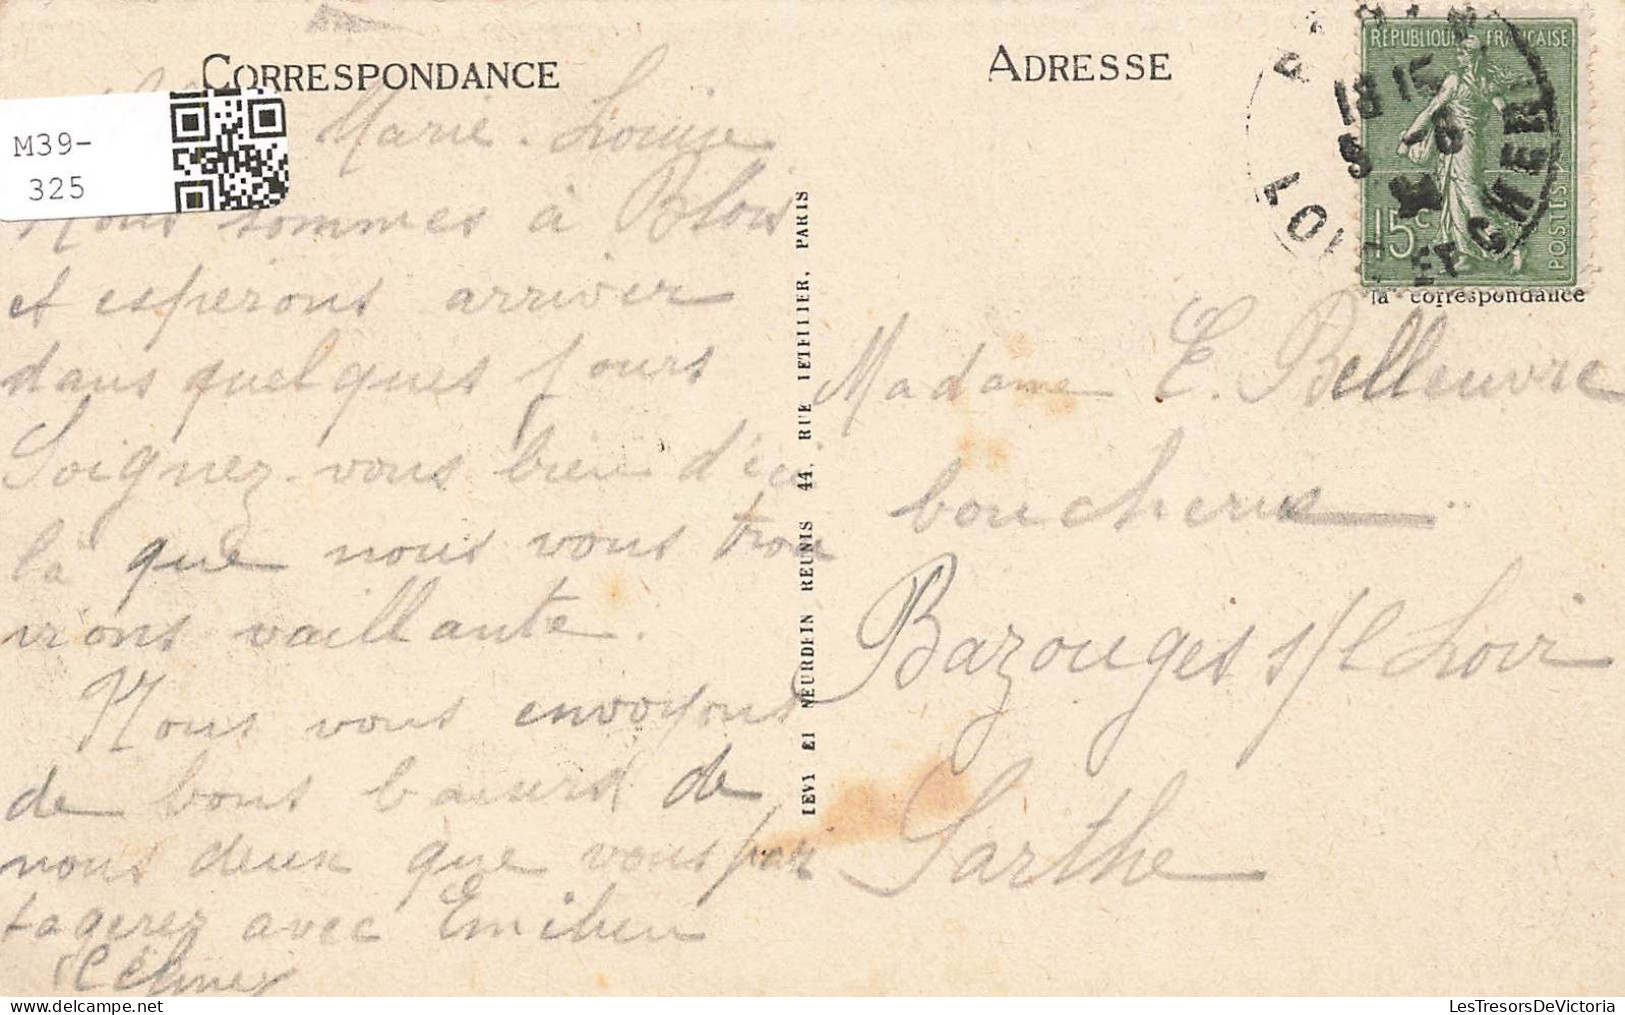 CORRESPONDANCE
ADRESSE
M39-
325
Marie-Louise
Nous sommes à Blois
et esperons arriver
dans quelques jours
Soignez-vous bien d'ici
là que nous vous trou
virons vaillante.
Nous vous envoyons
de bons baisers de
nous deux que vous par
tagerez avec Emilien
LEVY ET NEURDEIN REUNIS 44, RUE LETELLIER, PARIS
REPUBLIQUE FRANÇAISE
15c
POSTES
18 15
LOIR ET CHER
la correspondance
Madame E. Belleuvre
boucherie
Bazouges s/l Loir
Sarthe
LesTresorsDeVictoria.com